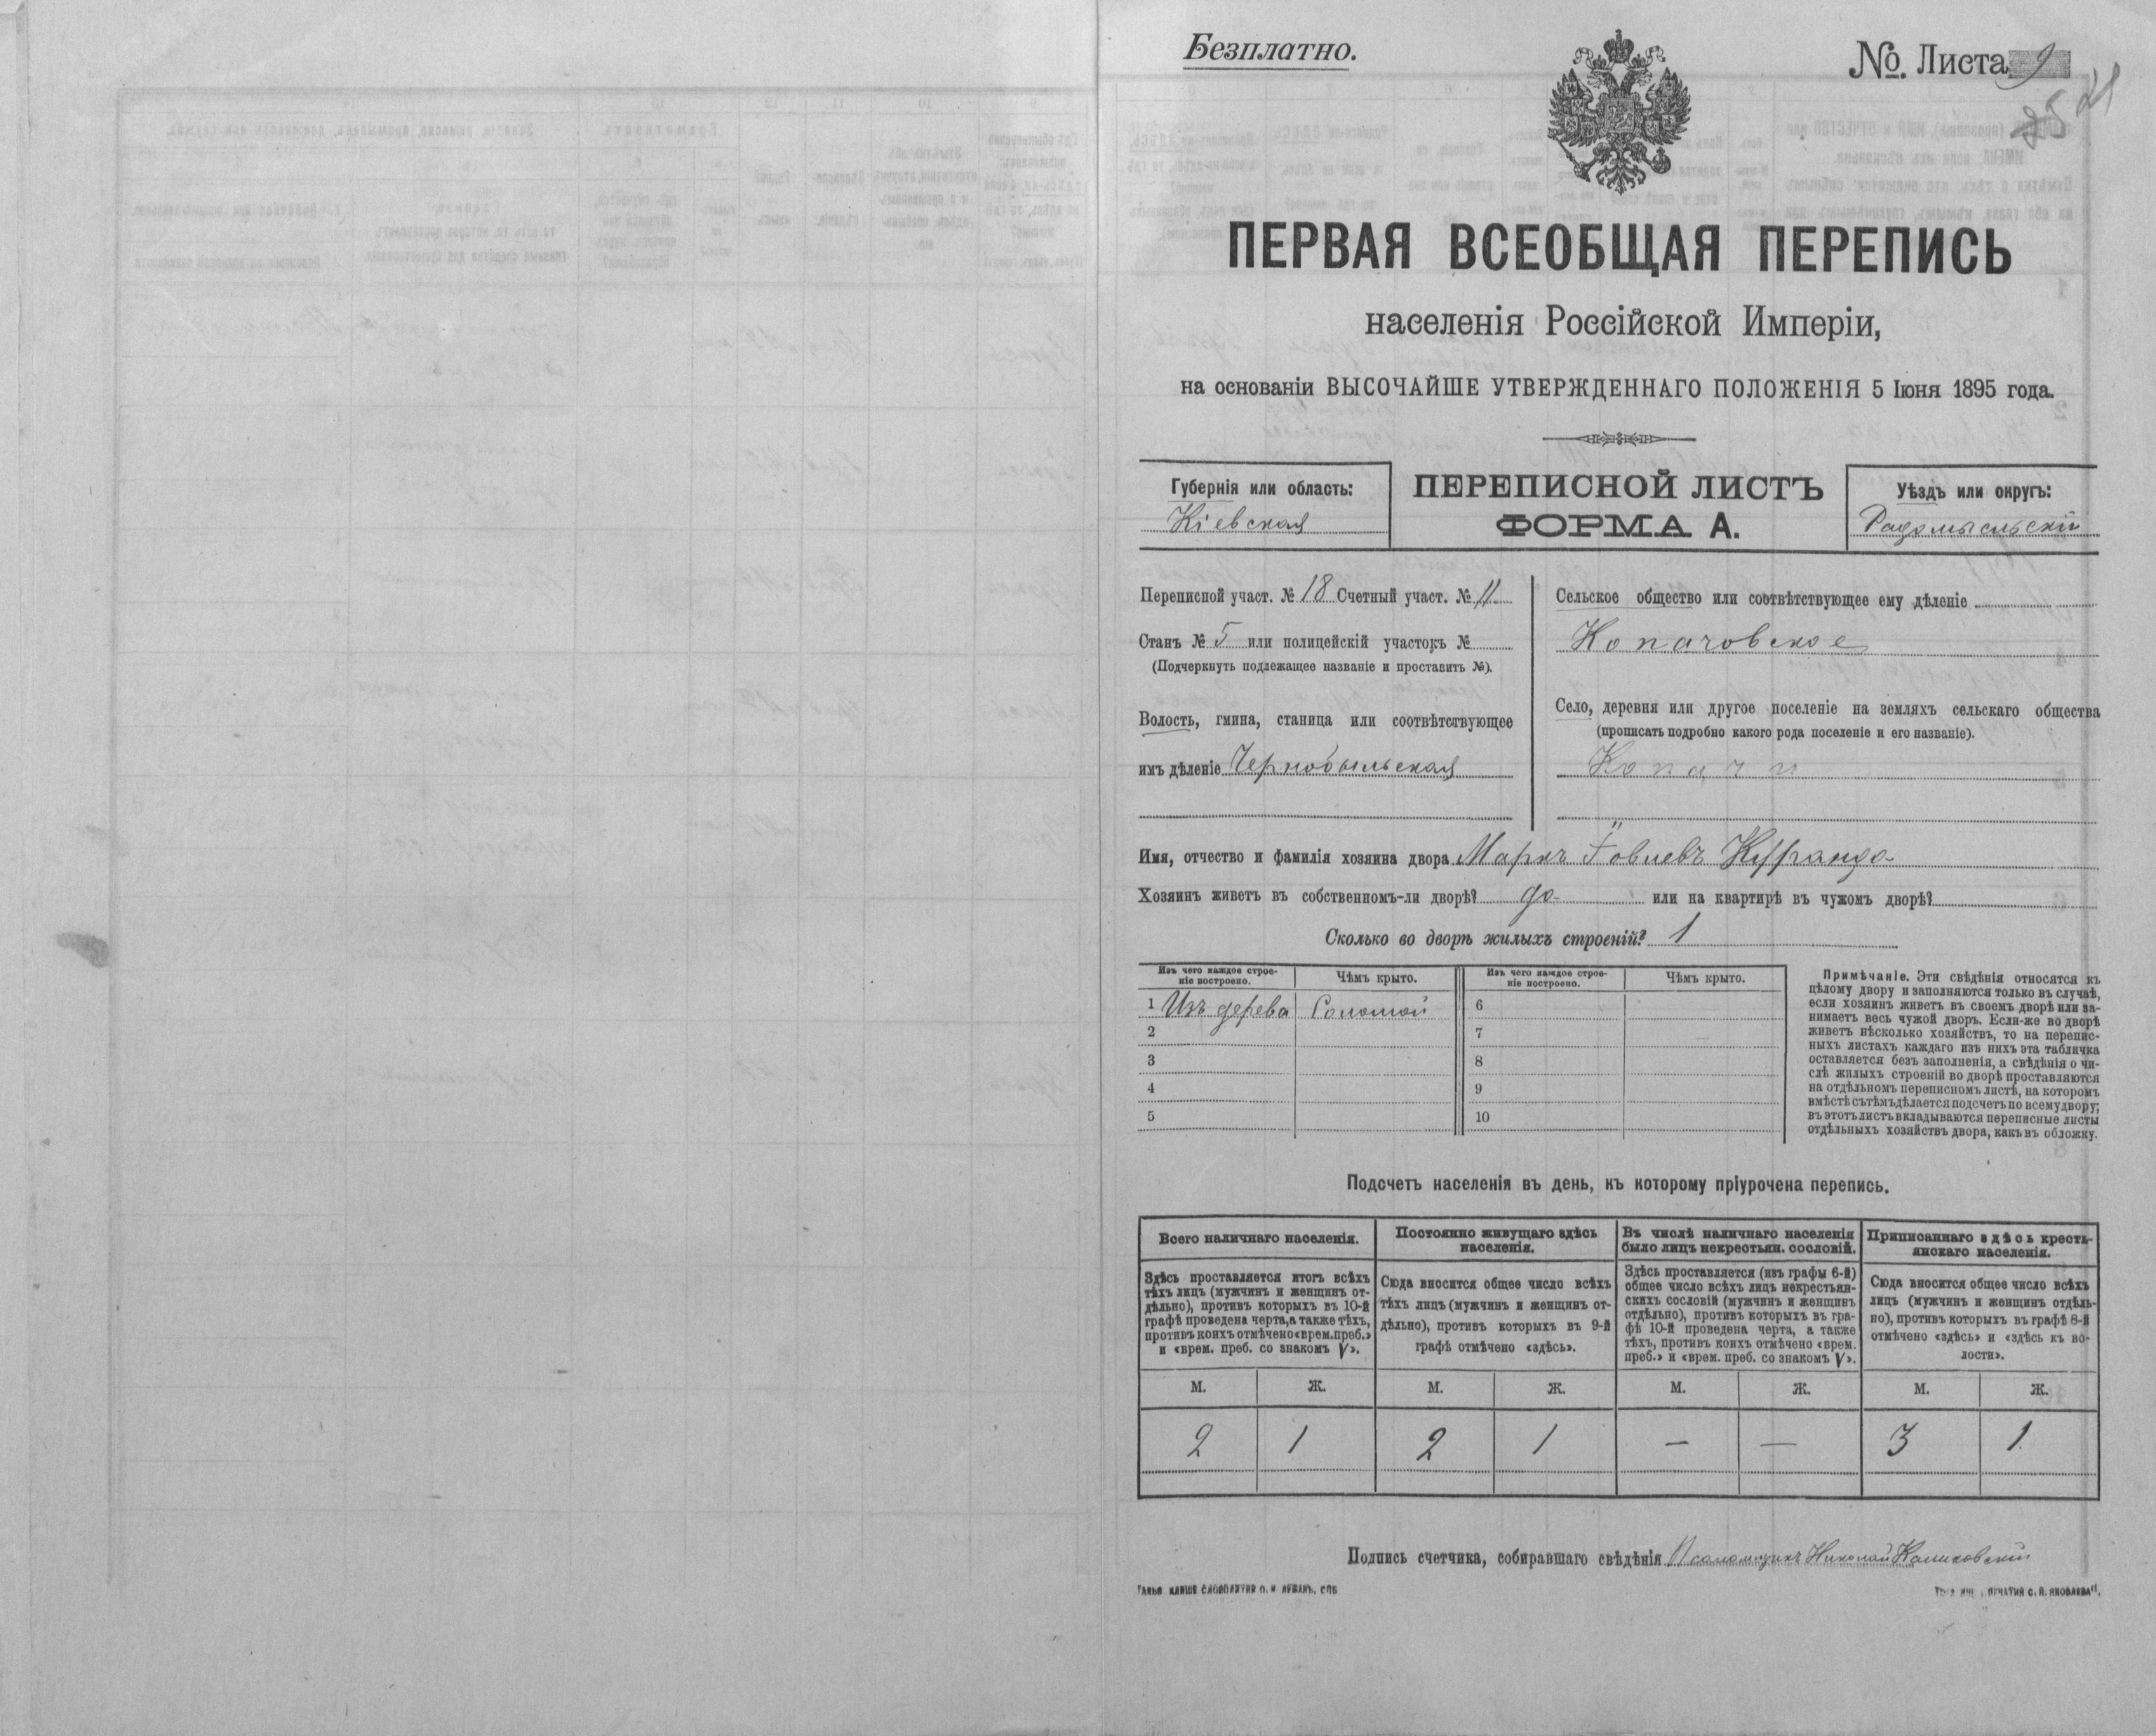 Безплатно.
№. Листа 9
25 21
ПЕРВАЯ ВСЕОБЩАЯ ПЕРЕПИСЬ
населенія Россійской Имперіи,
на основаніи ВЫСОЧАЙШЕ УТВЕРЖДЕННАГО ПОЛОЖЕНІЯ 5 Іюня 1895 года.
Губернія или область:
Кіевская
ПЕРЕПИСНОЙ ЛИСТЪ
ФОРМА А.
Уѣздъ или округъ:
Радомысльскій
Переписной участ. № 18 Счетный участ. № 11
Станъ № 5 или полицейскій участокъ №
(Подчеркнуть подлежащее названіе и проставить №).
Волость, гмина, станица или соотвѣтствующее
имъ дѣленіе Чернобыльская
Сельское общество или соотвѣтствующее ему дѣленіе
Копачовское
Село, деревня или другое поселеніе на земляхъ сельскаго общества
(прописать подробно какого рода поселеніе и его названіе).
Копачи
Имя, отчество и фамилія хозяина двора Маркъ Іовлевъ
Хозяинъ живетъ въ собственномъ-ли дворѣ? да или на квартирѣ въ чужомъ дворѣ?
Сколько во дворѣ жилыхъ строеній? 1
Изъ чего каждое строе-
ніе построено.
Чѣмъ крыто.
Изъ чего каждое строе-
ніе построено.
Чѣмъ крыто.
1 Изъ дерева Соломой 6
2 7
3 8
4 9
5 10
Примѣчаніе. Эти свѣдѣнія относятся къ
цѣлому двору и заполняются только въ случаѣ,
если хозяинъ живетъ въ своемъ дворѣ или за-
нимаетъ весь чужой дворъ. Если-же во дворѣ
живетъ нѣсколько хозяйствъ, то на перепис-
ныхъ листахъ каждаго изъ нихъ эта табличка
оставляется безъ заполненія, а свѣдѣнія о чи-
слѣ жилыхъ строеній во дворѣ проставляются
на отдѣльномъ переписномъ листѣ, на которомъ
вмѣстѣ съ тѣмъ дѣлается подсчетъ по всему двору;
въ этотъ листъ вкладываются переписные листы
отдѣльныхъ хозяйствъ двора, какъ въ обложку.
Подсчетъ населенія въ день, къ которому пріурочена перепись.
Всего наличнаго населенія.
Здѣсь проставляется итогъ всѣхъ
тѣхъ лицъ (мужчинъ и женщинъ от-
дѣльно), противъ которыхъ въ 10-й
графѣ проведена черта, а также тѣхъ,
противъ коихъ отмѣчено «врем. преб.»
и «врем. преб. со знакомъ V».
Постоянно живущаго здѣсь
населенія.
Сюда вносится общее число всѣхъ
тѣхъ лицъ (мужчинъ и женщинъ от-
дѣльно), противъ которыхъ въ 9-й
графѣ отмѣчено «здѣсь».
Въ числѣ наличнаго населенія
было лицъ некрестьян. сословій.
Здѣсь проставляется (изъ графы 6-й)
общее число всѣхъ лицъ некрестьян-
скихъ сословій (мужчинъ и женщинъ
отдѣльно), противъ которыхъ въ гра-
фѣ 10-й проведена черта, а также
тѣхъ, противъ коихъ отмѣчено «врем.
преб.» и «врем. преб. со знакомъ V».
Приписаннаго здѣсь кресть-
янскаго населенія.
Сюда вносится общее число всѣхъ
лицъ (мужчинъ и женщинъ отдѣль-
но), противъ которыхъ въ графѣ 8-й
отмѣчено «здѣсь» и «здѣсь къ во-
лости».
М. Ж. М. Ж. М. Ж. М. Ж.
2 1 2 1 — — 3 1
Подпись счетчика, собиравшаго свѣдѣнія Псаломщикъ Николай